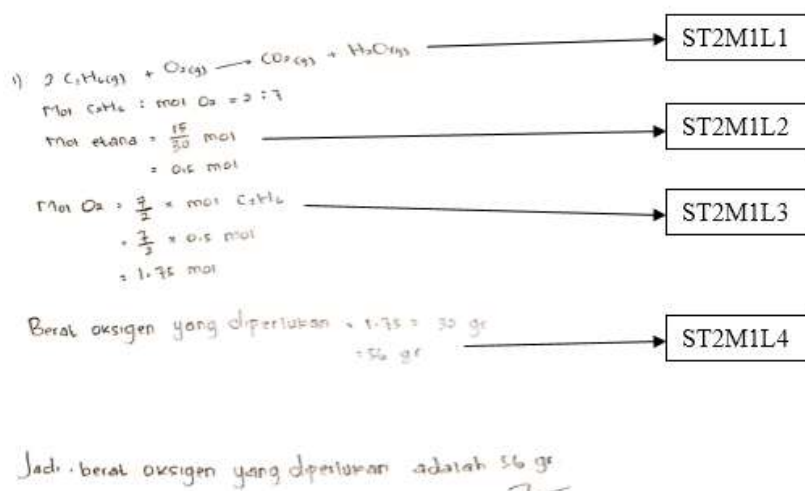 1) 2 C2H6(g) + O2(g) → CO2(g) + H2O(g) ST2M1L1
Mol C2H6 : mol O2 = 2 : 7
Mol etana = 15/30 mol ST2M1L2
= 0.5 mol
Mol O2 = 7/2 × mol C2H6 ST2M1L3
= 7/2 × 0.5 mol
= 1.75 mol
Berat oksigen yang diperlukan = 1.75 × 32 gr
= 56 gr ST2M1L4
Jadi, berat oksigen yang diperlukan adalah 56 gr